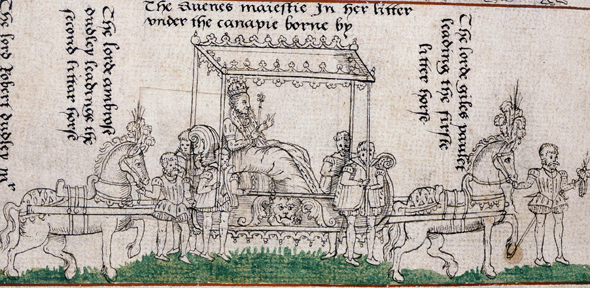 The Quenes maiestie In her litter
vnder the canapie borne by
The lord Robert dudley Mr
The lorde ambrose
dudley leadinge the
second littar horse
The lorde giles paulet
leading the firste
litter horse